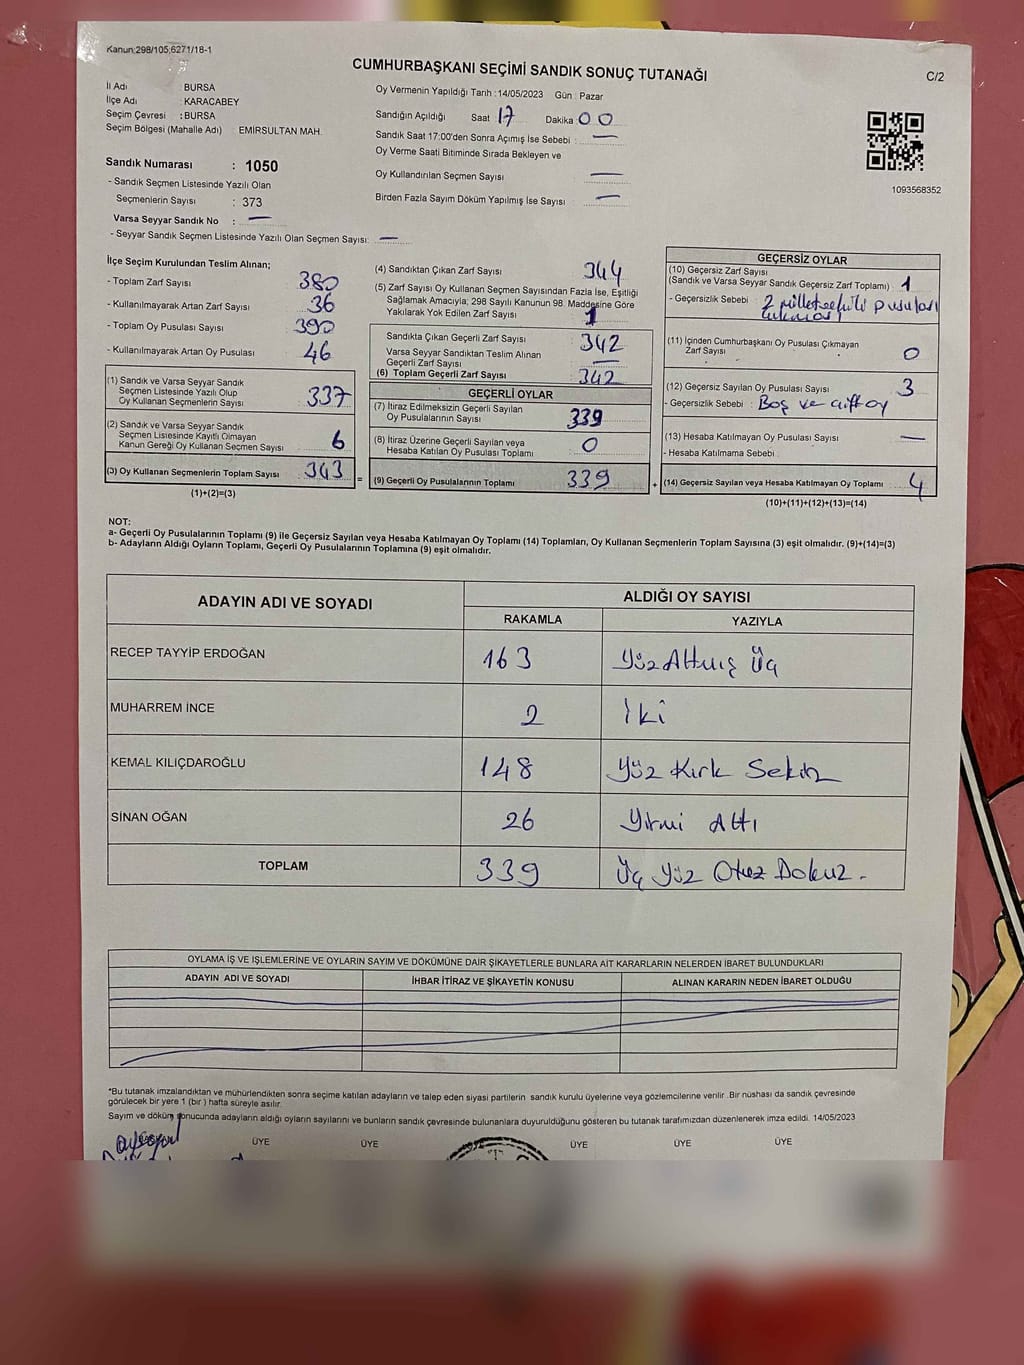 Kanun:298/105,6271/18-1
CUMHURBAŞKANI SEÇİMİ SANDIK SONUÇ TUTANAĞI
C/2
İl Adı : BURSA
İlçe Adı : KARACABEY
Seçim Çevresi : BURSA
Seçim Bölgesi (Mahalle Adı) EMİRSULTAN MAH.
Sandık Numarası : 1050
- Sandık Seçmen Listesinde Yazılı Olan
Seçmenlerin Sayısı : 373
Varsa Seyyar Sandık No : —
- Seyyar Sandık Seçmen Listesinde Yazılı Olan Seçmen Sayısı: —
Oy Vermenin Yapıldığı Tarih :14/05/2023 Gün : Pazar
Sandığın Açıldığı Saat 17 Dakika 00
Sandık Saat 17:00'den Sonra Açımış İse Sebebi : —
Oy Verme Saati Bitiminde Sırada Bekleyen ve
Oy Kullandırılan Seçmen Sayısı —
Birden Fazla Sayım Döküm Yapılmış İse Sayısı —
1093568352
İlçe Seçim Kurulundan Teslim Alınan;
- Toplam Zarf Sayısı : 380
- Kullanılmayarak Artan Zarf Sayısı : 36
- Toplam Oy Pusulası Sayısı : 390
- Kullanılmayarak Artan Oy Pusulası : 46
(1) Sandık ve Varsa Seyyar Sandık
Seçmen Listesinde Yazılı Olup
Oy Kullanan Seçmenlerin Sayısı : 337
(2) Sandık ve Varsa Seyyar Sandık
Seçmen Listesinde Kayıtlı Olmayan
Kanun Gereği Oy Kullanan Seçmen Sayısı : 6
(3) Oy Kullanan Seçmenlerin Toplam Sayısı : 343
(1)+(2)=(3)
(4) Sandıktan Çıkan Zarf Sayısı : 344
(5) Zarf Sayısı Oy Kullanan Seçmen Sayısından Fazla İse, Eşitliği
Sağlamak Amacıyla; 298 Sayılı Kanunun 98. Maddesine Göre
Yakılarak Yok Edilen Zarf Sayısı : 1
Sandıkta Çıkan Geçerli Zarf Sayısı : 342
Varsa Seyyar Sandıktan Teslim Alınan
Geçerli Zarf Sayısı : —
(6) Toplam Geçerli Zarf Sayısı : 342
=
GEÇERLİ OYLAR
(7) İtiraz Edilmeksizin Geçerli Sayılan
Oy Pusulalarının Sayısı : 339
(8) İtiraz Üzerine Geçerli Sayılan veya
Hesaba Katılan Oy Pusulası Toplamı : 0
(9) Geçerli Oy Pusulalarının Toplamı : 339
+
GEÇERSİZ OYLAR
(10) Geçersiz Zarf Sayısı
(Sandık ve Varsa Seyyar Sandık Geçersiz Zarf Toplamı) : 1
- Geçersizlik Sebebi : 2 milletvekili pusulası
çıkması
(11) İçinden Cumhurbaşkanı Oy Pusulası Çıkmayan
Zarf Sayısı : 0
(12) Geçersiz Sayılan Oy Pusulası Sayısı : 3
- Geçersizlik Sebebi : Boş ve çift oy
(13) Hesaba Katılmayan Oy Pusulası Sayısı : —
- Hesaba Katılmama Sebebi
(14) Geçersiz Sayılan veya Hesaba Katılmayan Oy Toplamı : 4
(10)+(11)+(12)+(13)=(14)
NOT:
a- Geçerli Oy Pusulalarının Toplamı (9) ile Geçersiz Sayılan veya Hesaba Katılmayan Oy Toplamı (14) Toplamları, Oy Kullanan Seçmenlerin Toplam Sayısına (3) eşit olmalıdır. (9)+(14)=(3)
b- Adayların Aldığı Oyların Toplamı, Geçerli Oy Pusulalarının Toplamına (9) eşit olmalıdır.
ADAYIN ADI VE SOYADI
ALDIĞI OY SAYISI
RAKAMLA YAZIYLA
RECEP TAYYİP ERDOĞAN 163 Yüz Altmış Üç
MUHARREM İNCE 2 İki
KEMAL KILIÇDAROĞLU 148 Yüz Kırk Sekiz
SİNAN OĞAN 26 Yirmi Altı
TOPLAM 339 Üç Yüz Otuz Dokuz.
OYLAMA İŞ VE İŞLEMLERİNE VE OYLARIN SAYIM VE DÖKÜMÜNE DAİR ŞİKAYETLERLE BUNLARA AİT KARARLARIN NELERDEN İBARET BULUNDUKLARI
ADAYIN ADI VE SOYADI İHBAR İTİRAZ VE ŞİKAYETİN KONUSU ALINAN KARARIN NEDEN İBARET OLDUĞU
*Bu tutanak imzalandıktan ve mühürlendikten sonra seçime katılan adayların ve talep eden siyasi partilerin sandık kurulu üyelerine veya gözlemcilerine verilir. Bir nüshası da sandık çevresinde
görülecek bir yere 1 (bir) hafta süreyle asılır.
Sayım ve döküm sonucunda adayların aldığı oyların sayılarını ve bunların sandık çevresinde bulunanlara duyurulduğunu gösteren bu tutanak tarafımızdan düzenlenerek imza edildi. 14/05/2023
ÜYE ÜYE ÜYE ÜYE ÜYE